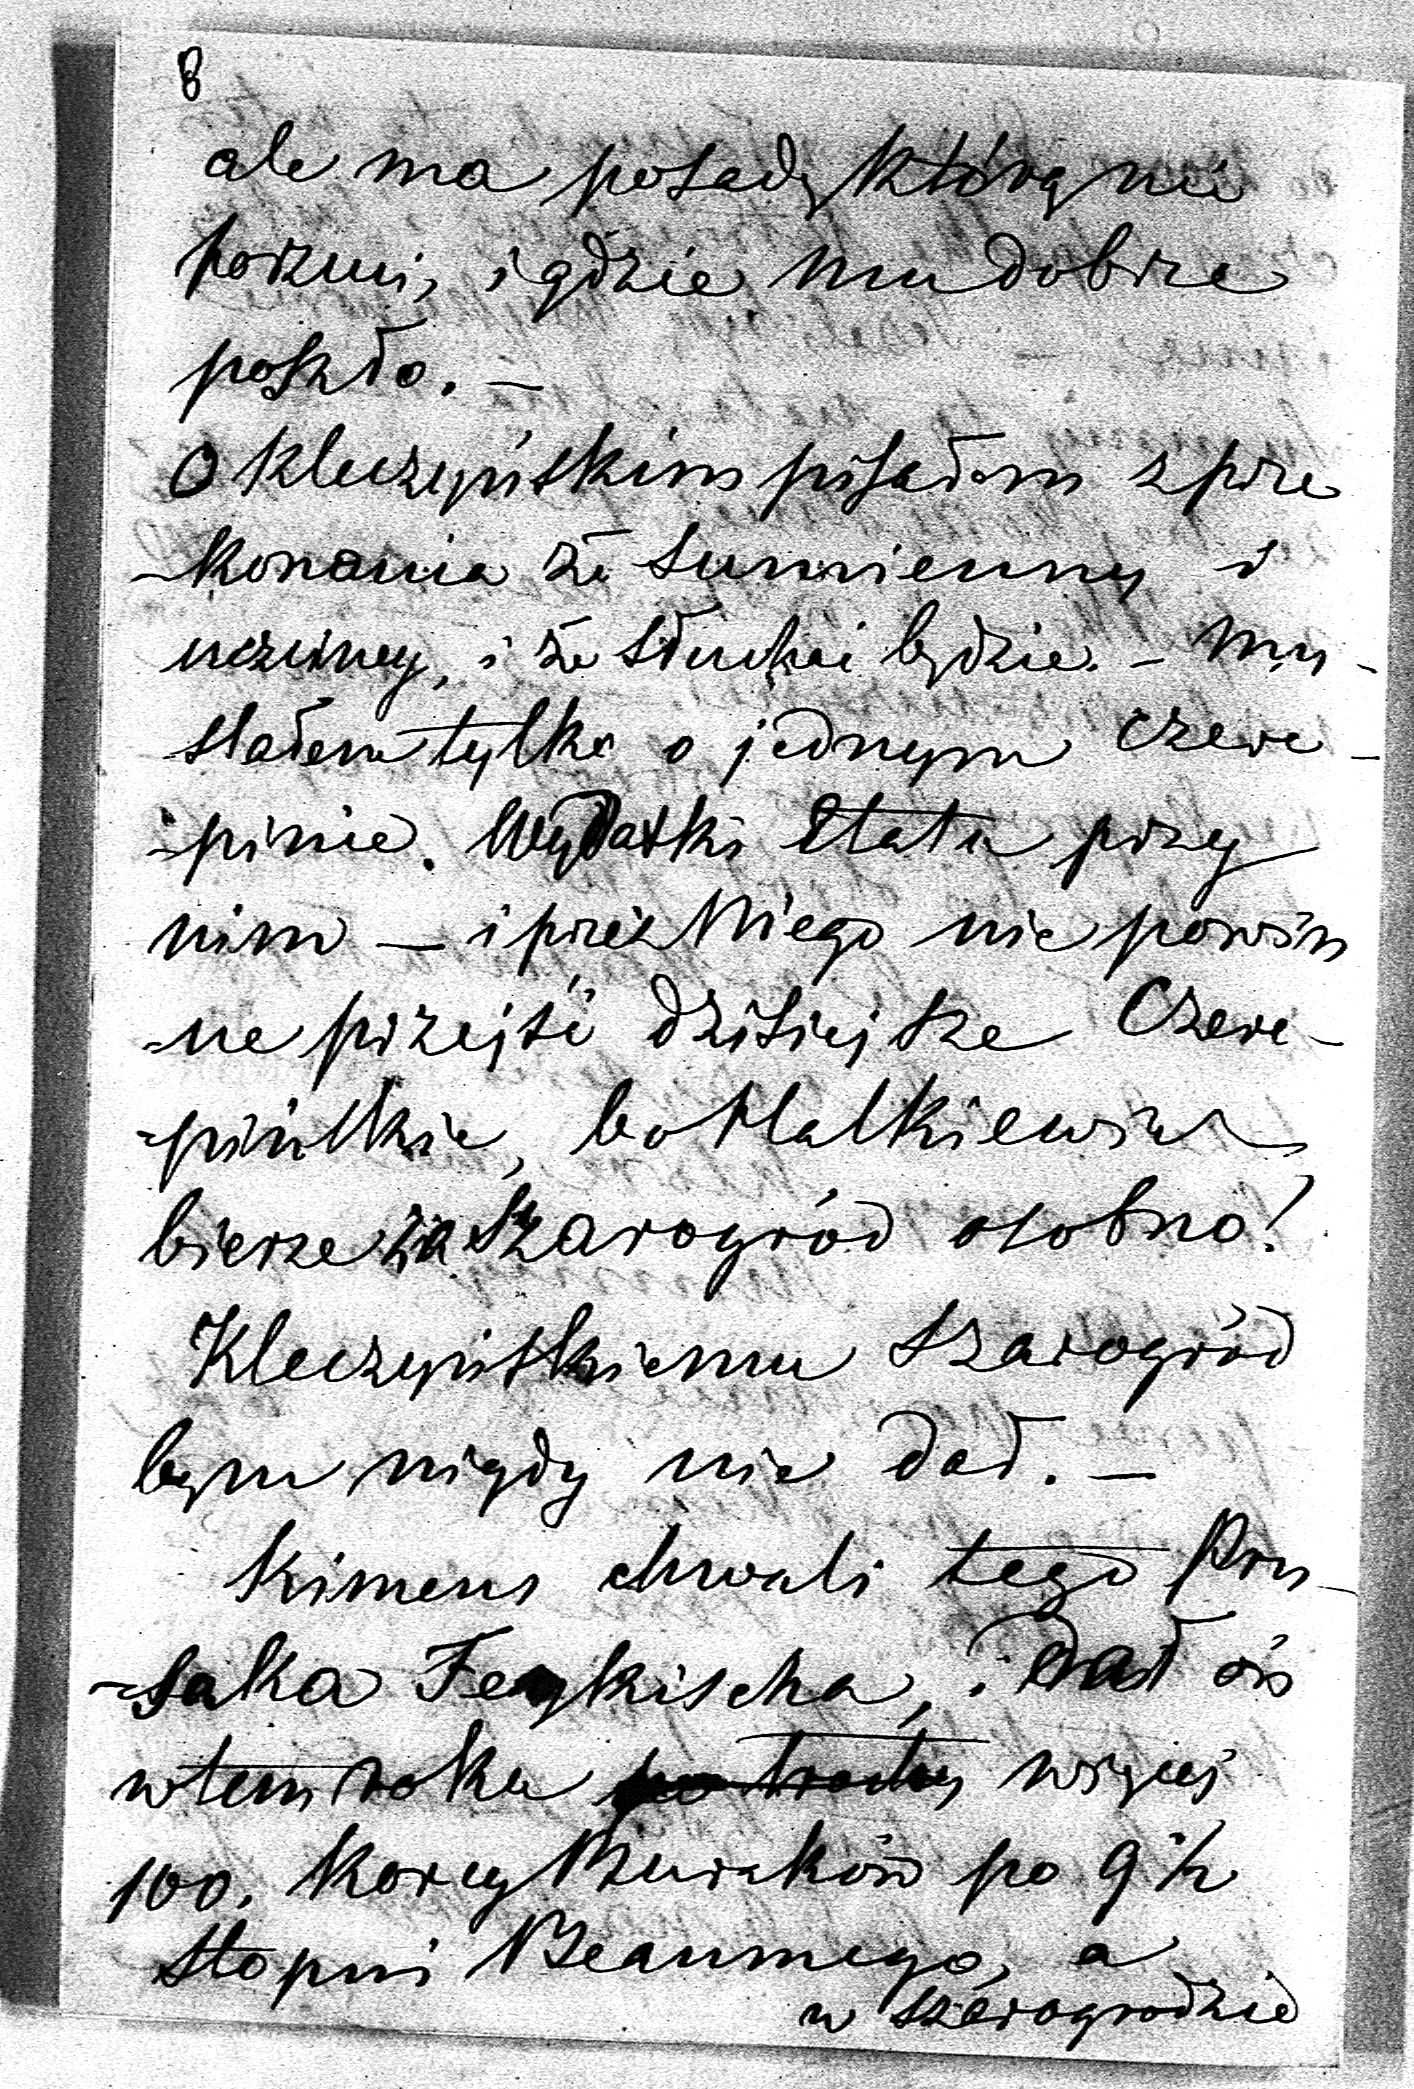 8
ale ma posadę którą nie
porzuci, i gdzie mu dobrze
poszło. —
O Kleczyńskim pisałem z prze
-konania że sumienny i
uczciwy, i że słuchać będzie. — My-
słałem tylko o jednym Czere-
-pinie. Wydatki Etatu przy
nim — i przez Niego nie powin
-ne przejść dzisiejsze Czere-
-pińskie, bo Malkiewicz
bierze za Szarogród osobno!
Kleczyńskiemu Szarogród
bym nigdy nie dał. —
Kimens chwali tego Pru-
-saka Feykischa, i dał on
w tem roku więcej
100. Korcy Buraków po 9 ½
Stopni Beaumego, a
w Szarogrodzie